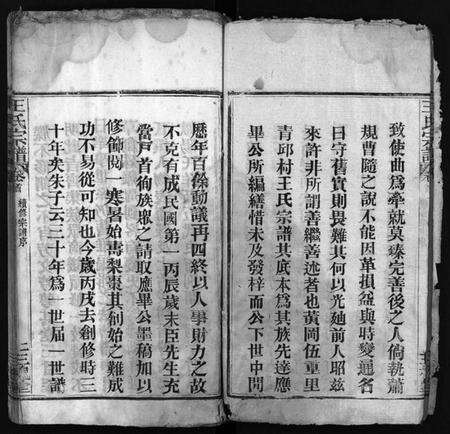 致使曲為牽就莫臻完善後之人倘執蕭
規曹隨之說不能因革損益與時變通名
曰守舊實則畏難其何以光廸前人昭茲
來許非所謂善繼善述者也黃岡伍重里
青邱村王氏宗譜其底本為其族先達應
畢公所編繕惜未及發梓而公下世中間
歷年百餘動議再四終以人事財力之故
不克有成民國第一丙辰歲未臣先生充
當戸首徇族衆之請取應畢公墨稿加以
修飾閱一寒暑始壽梨棗其刱始之難成
功不易從可知也今歲丙戌去創修時三
十年矣朱子云三十年為一世屆一世譜
王氏宗譜
卷首
續修宗譜序
王氏宗譜